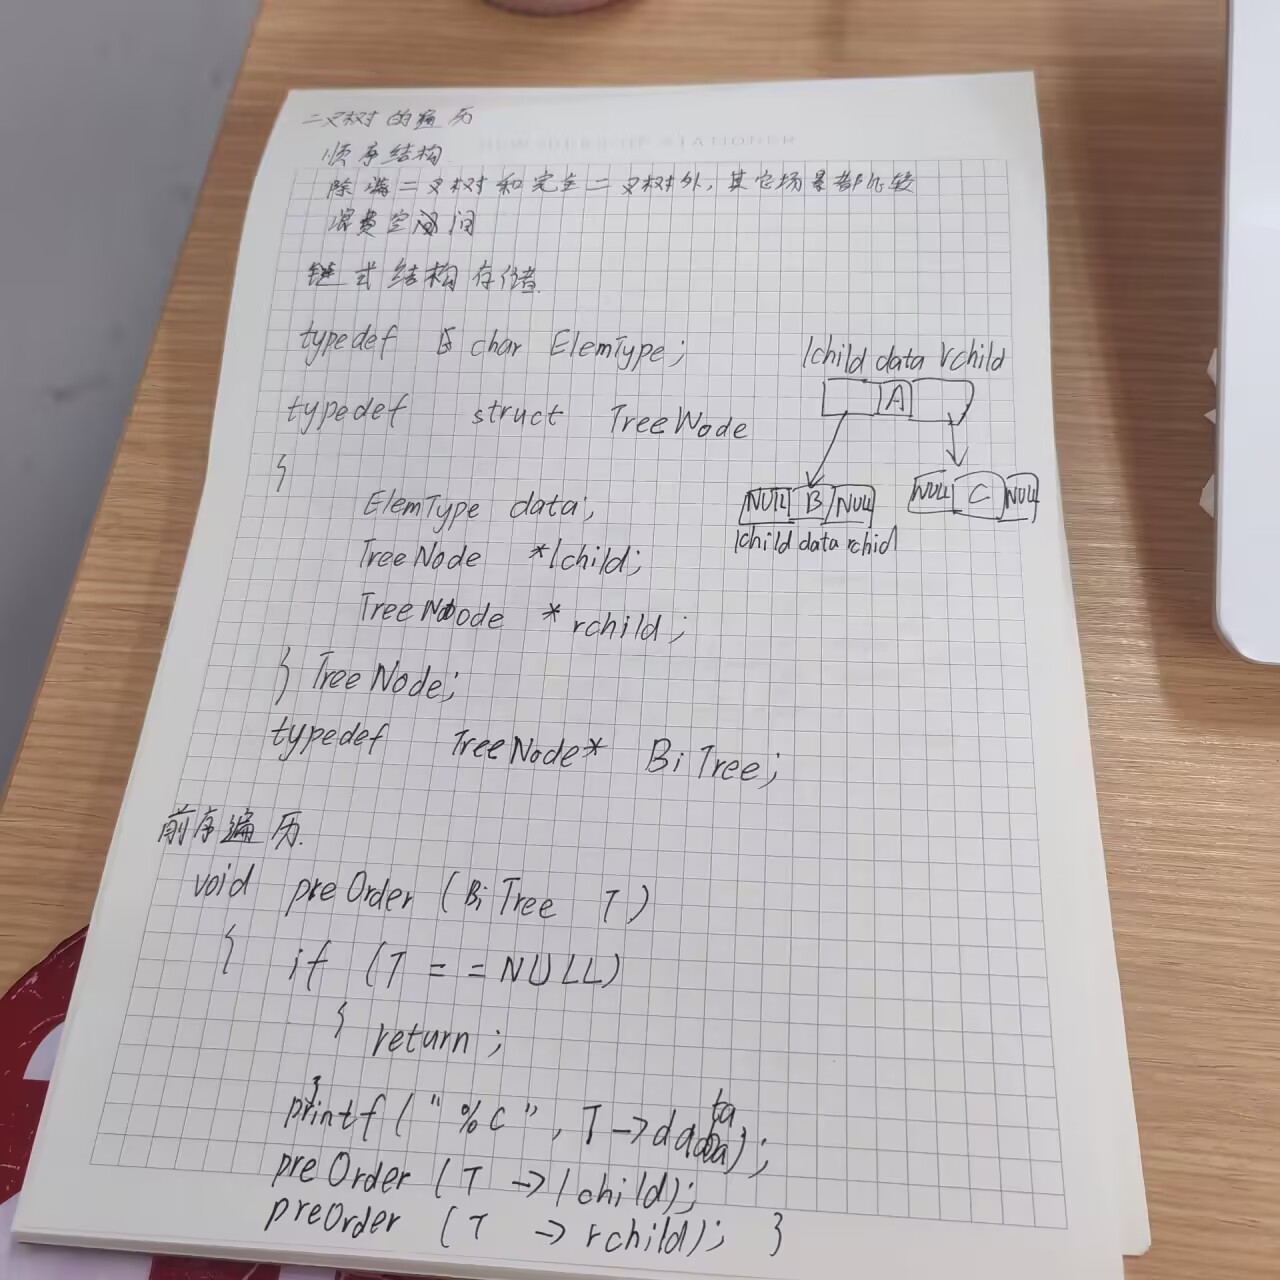 二叉树的遍历
顺序结构
除满二叉树和完全二叉树外，其它场景都比较
浪费空间
链式结构存储
typedef char ElemType;
lchild data rchild
A
typedef struct TreeNode
{
NULL B NULL
NULL C NULL
lchild data rchid
ElemType data;
TreeNode *lchild;
TreeNode * rchild;
} TreeNode;
typedef TreeNode* BiTree;
前序遍历
void preOrder (BiTree T)
{ if (T == NULL)
{ return ;
}
printf ( "%c" , T -> data);
preOrder (T -> lchild);
preOrder (T -> rchild); }